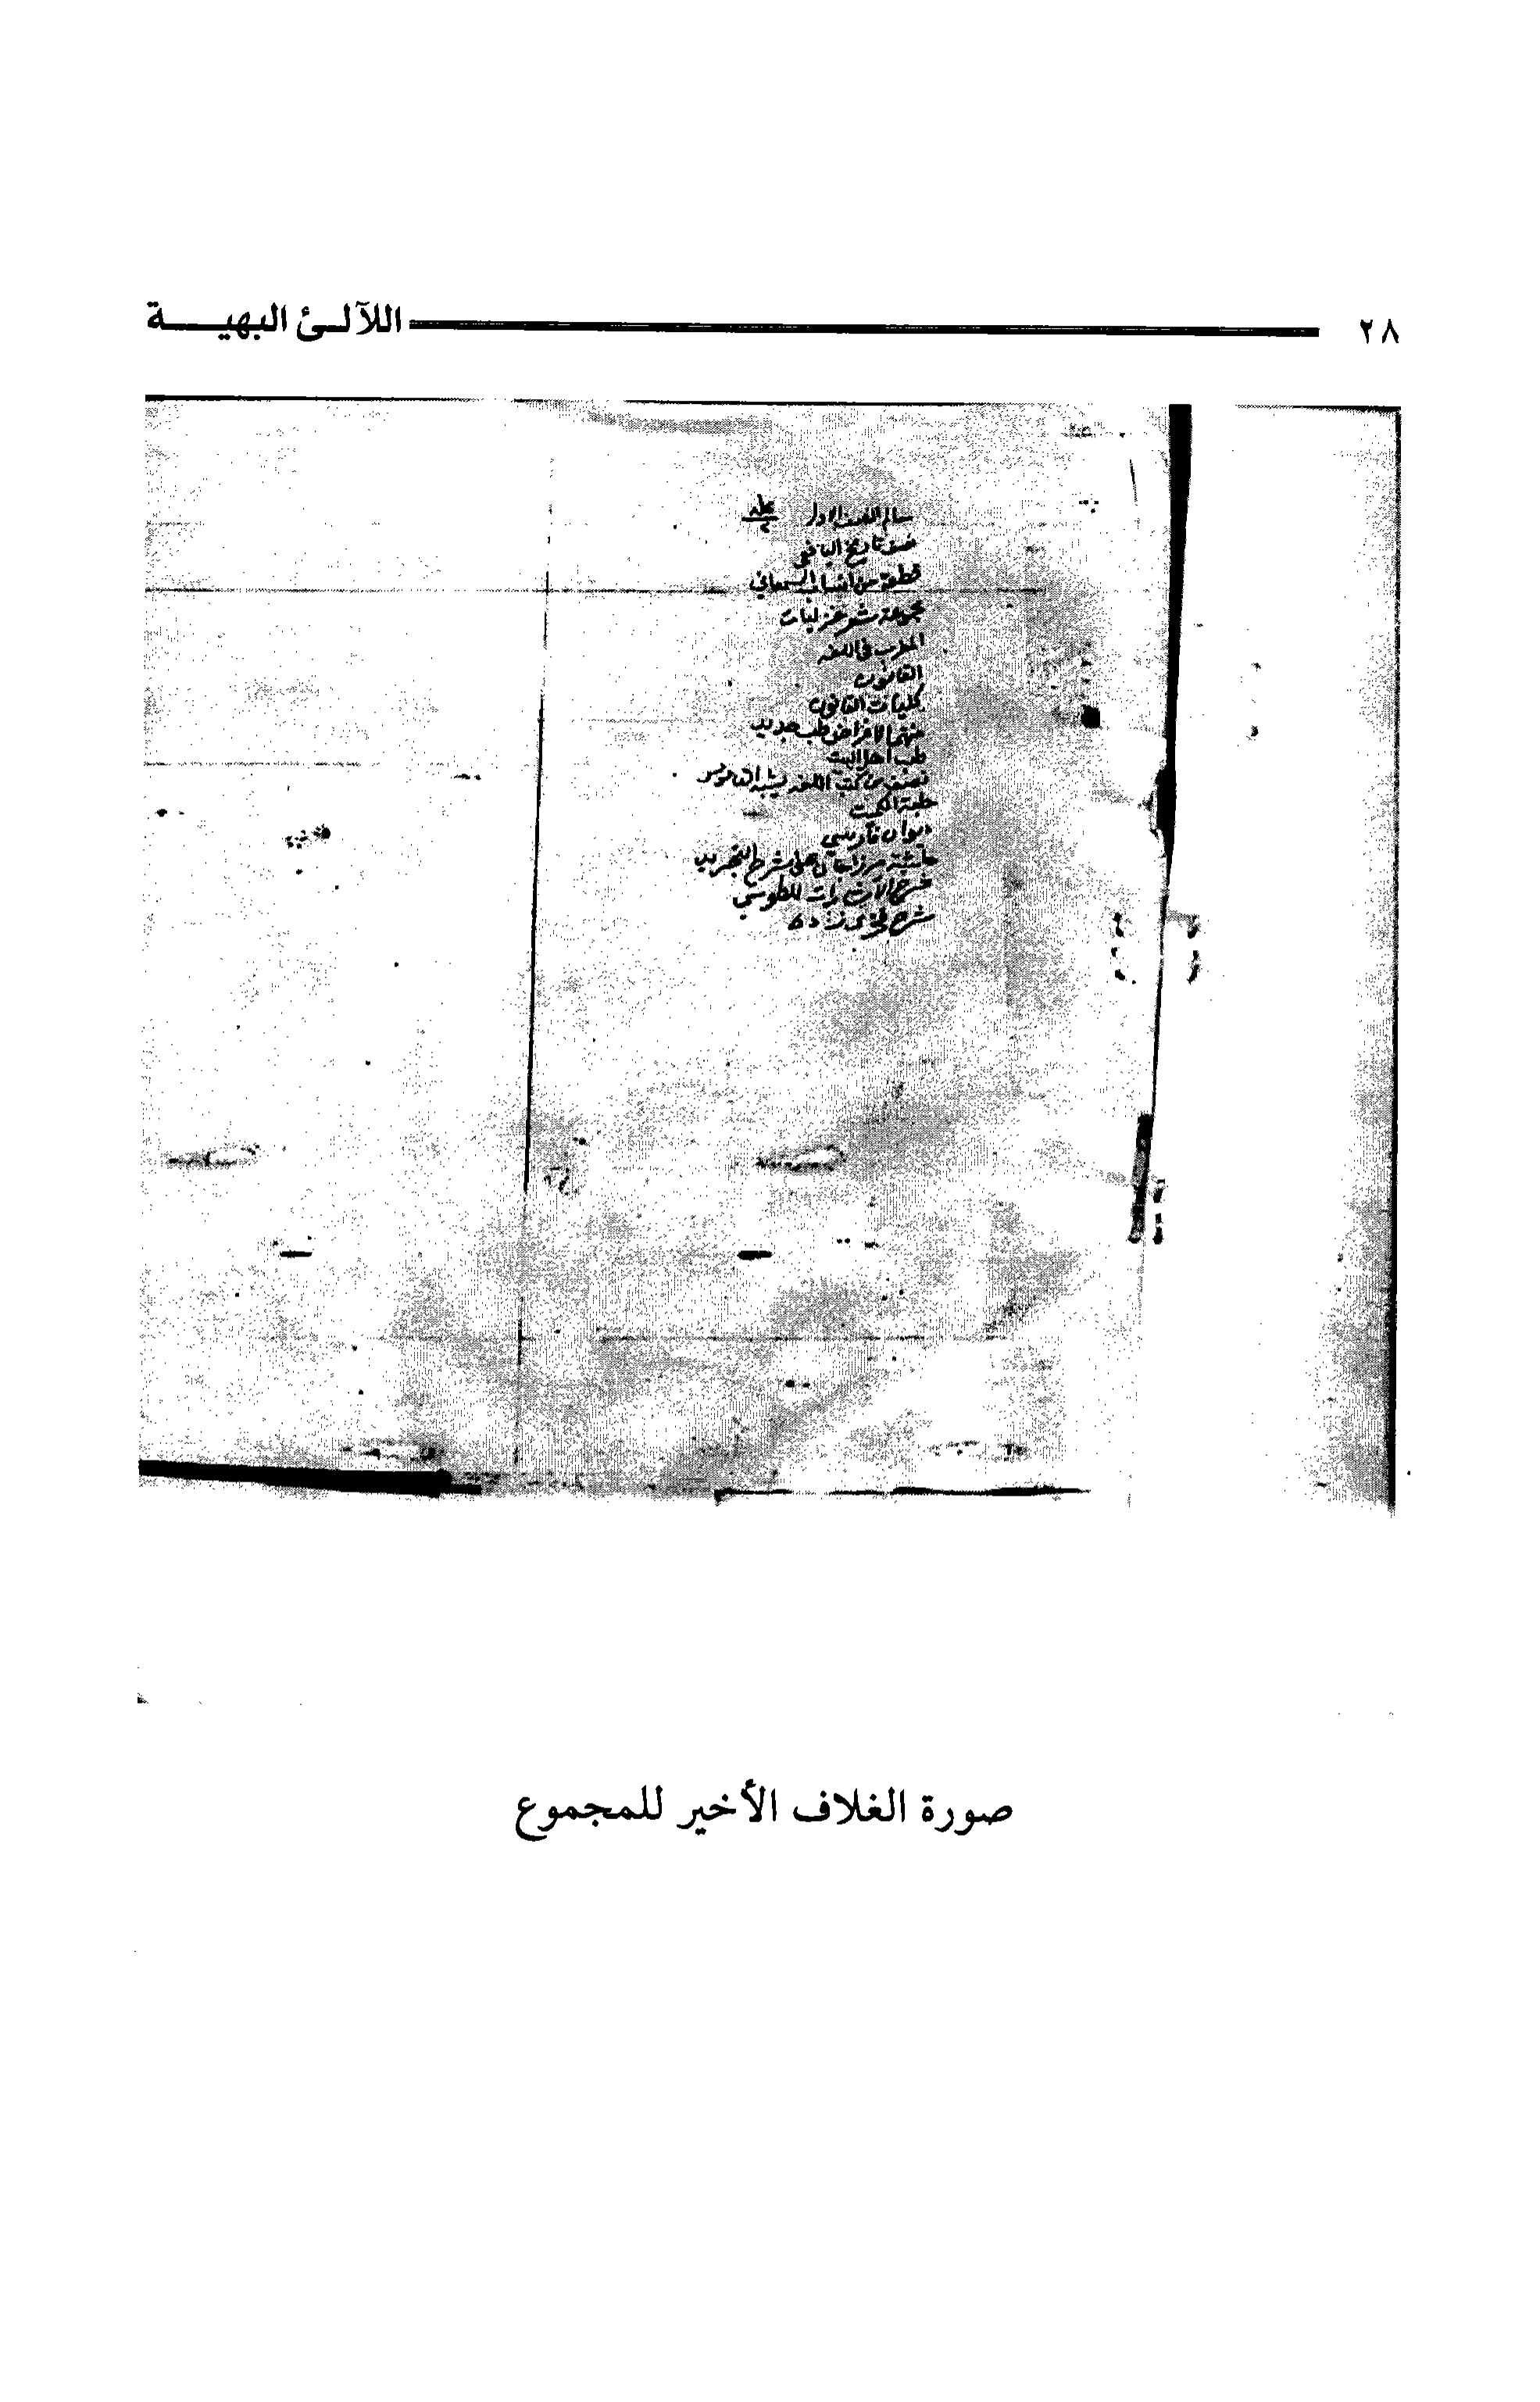 ٢٨ اللآلئ البهية
تاريخ اليافعي
قطعة من انساب السمعاني
مجموعة شعر غزليات
المغرب في اللغه
القانون
كليات القانون
طب جديد
طب اهل البيت
من كتب اللغه يشبه القاموس
حلبة الكميت
ديوان فارسي
حاشية مرزاجان على شرح التجريد
شرح الاشارات للطوسي
شرح
صورة الغلاف الأخير للمجموع